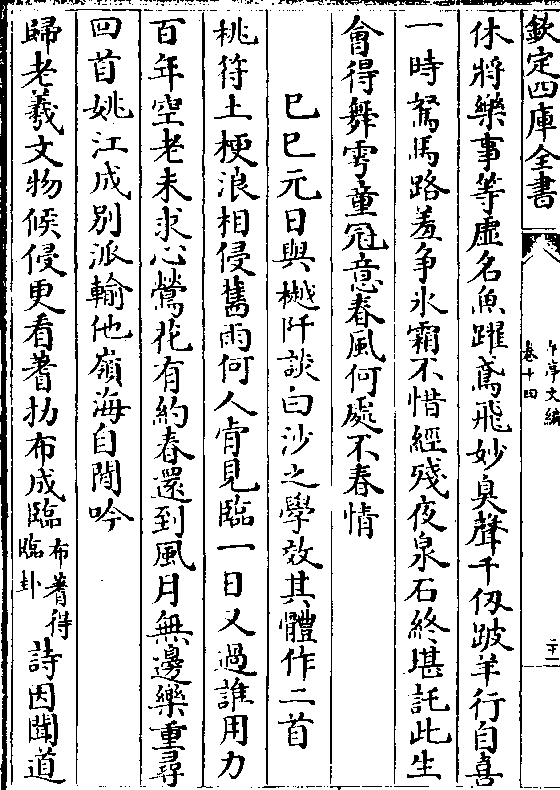 欽定四庫全書
午亭文編
卷十四
二十一
休將樂事等虛名魚躍鳶飛妙臭聲千仭跛羊行自喜
一時駑馬路羞争氷霜不惜經殘夜泉石終堪託此生
會得舞雩童冠意春風何處不春情
己巳元日與樾阡談白沙之學效其體作二首
桃符土梗浪相侵舊雨何人肯見臨一日又過誰用力
百年空老未求心鶯花有約春還到風月無邊樂重尋
回首姚江成别派輸他嶺海自閒吟
歸老羲文物候侵更看蓍扐布成臨布蓍得臨卦詩因聞道